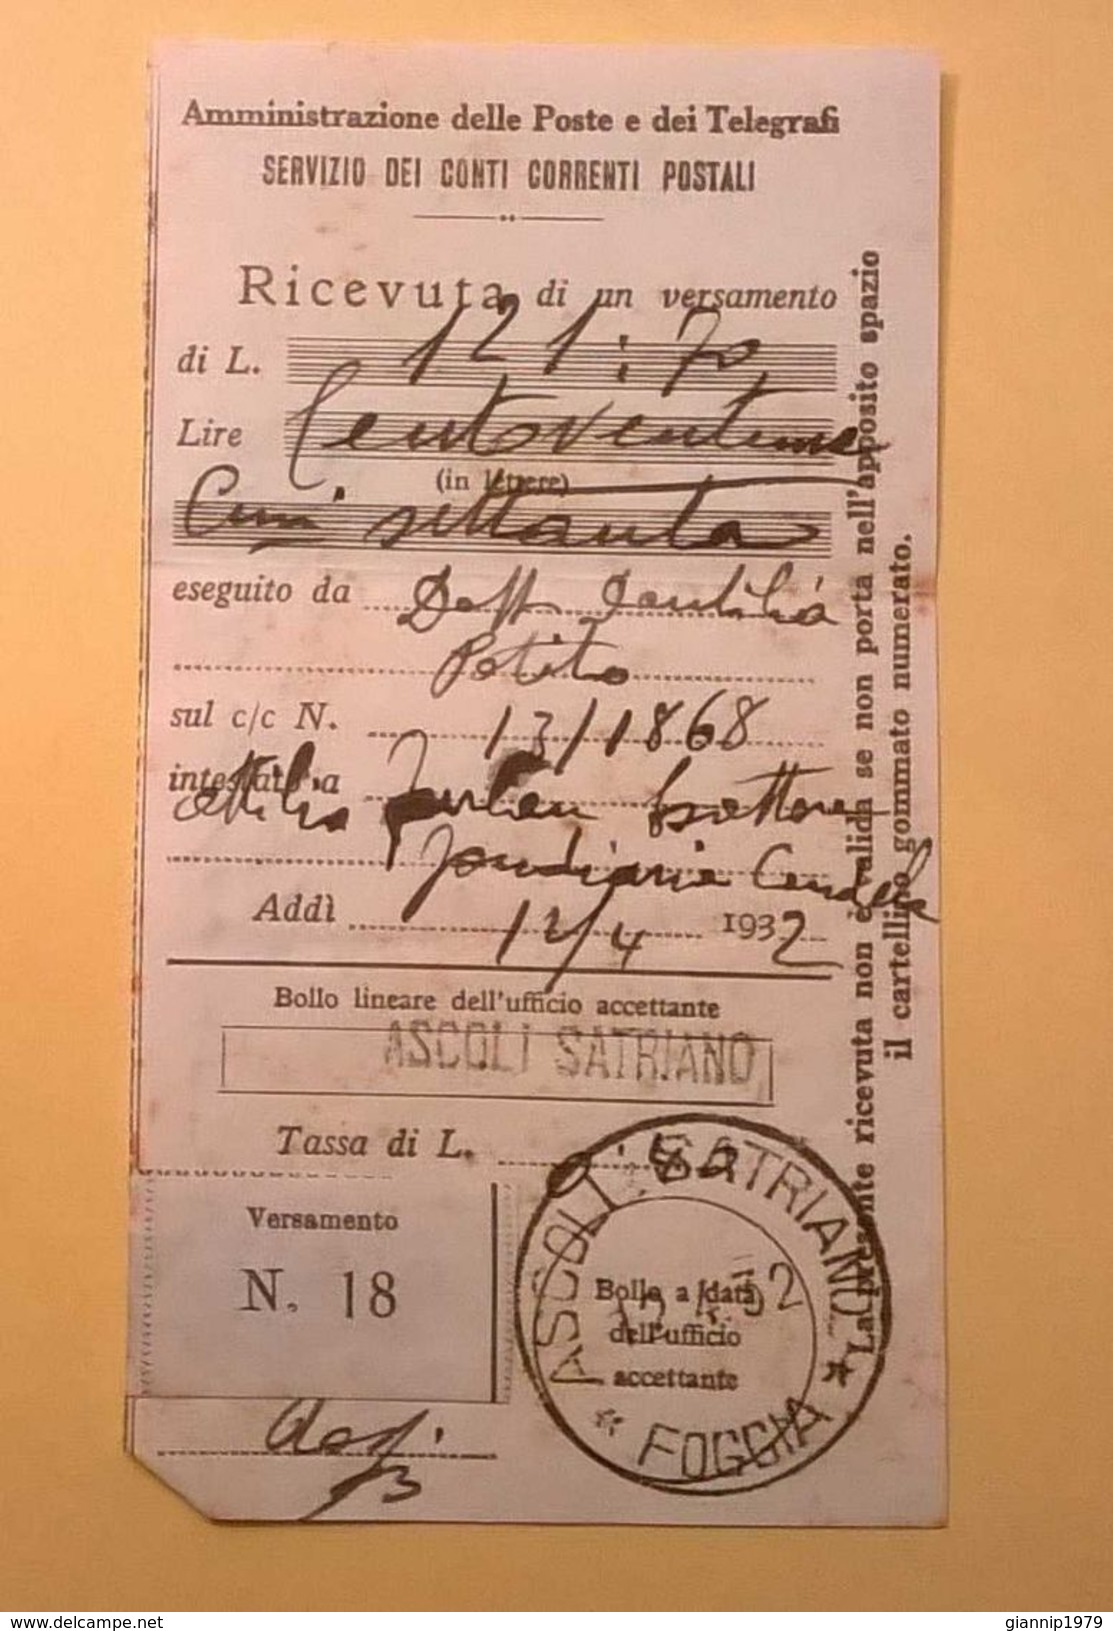 Amministrazione delle Poste e dei Telegrafi
SERVIZIO DEI CONTI CORRENTI POSTALI
Ricevuta di un versamento
di L. 121:70
Lire Centoventuno
(in lettere)
Cmi settanta
eseguito da Dott
Potito
sul c/c N. 13/1868
intestato a
Attilio Esattore
Candela
Addì 12/4 1932
Bollo lineare dell'ufficio accettante
ASCOLI SATRIANO
Tassa di L.
Versamento
N. 18
ASCOLI SATRIANO
Bollo a data
dell'ufficio
accettante
* FOGGIA *
La presente ricevuta non è valida se non porta nell'apposito spazio
il cartellino gommato numerato.
delcampe.net
giannip1979